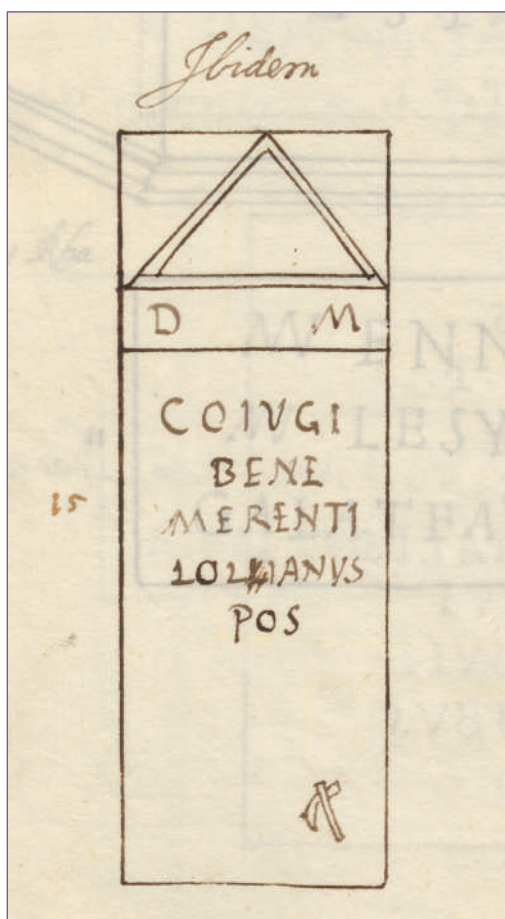 Ibidem
D M
COIVGI
BENE
15
MERENTI
LOLLIANVS
POS